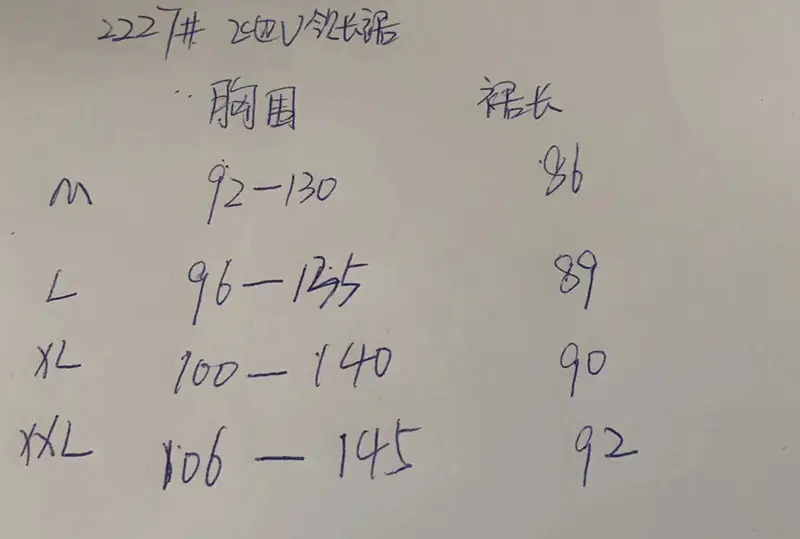 2227# V领长裙
胸围 裙长
M 92-130 86
L 96-135 89
XL 100-140 90
XXL 106-145 92